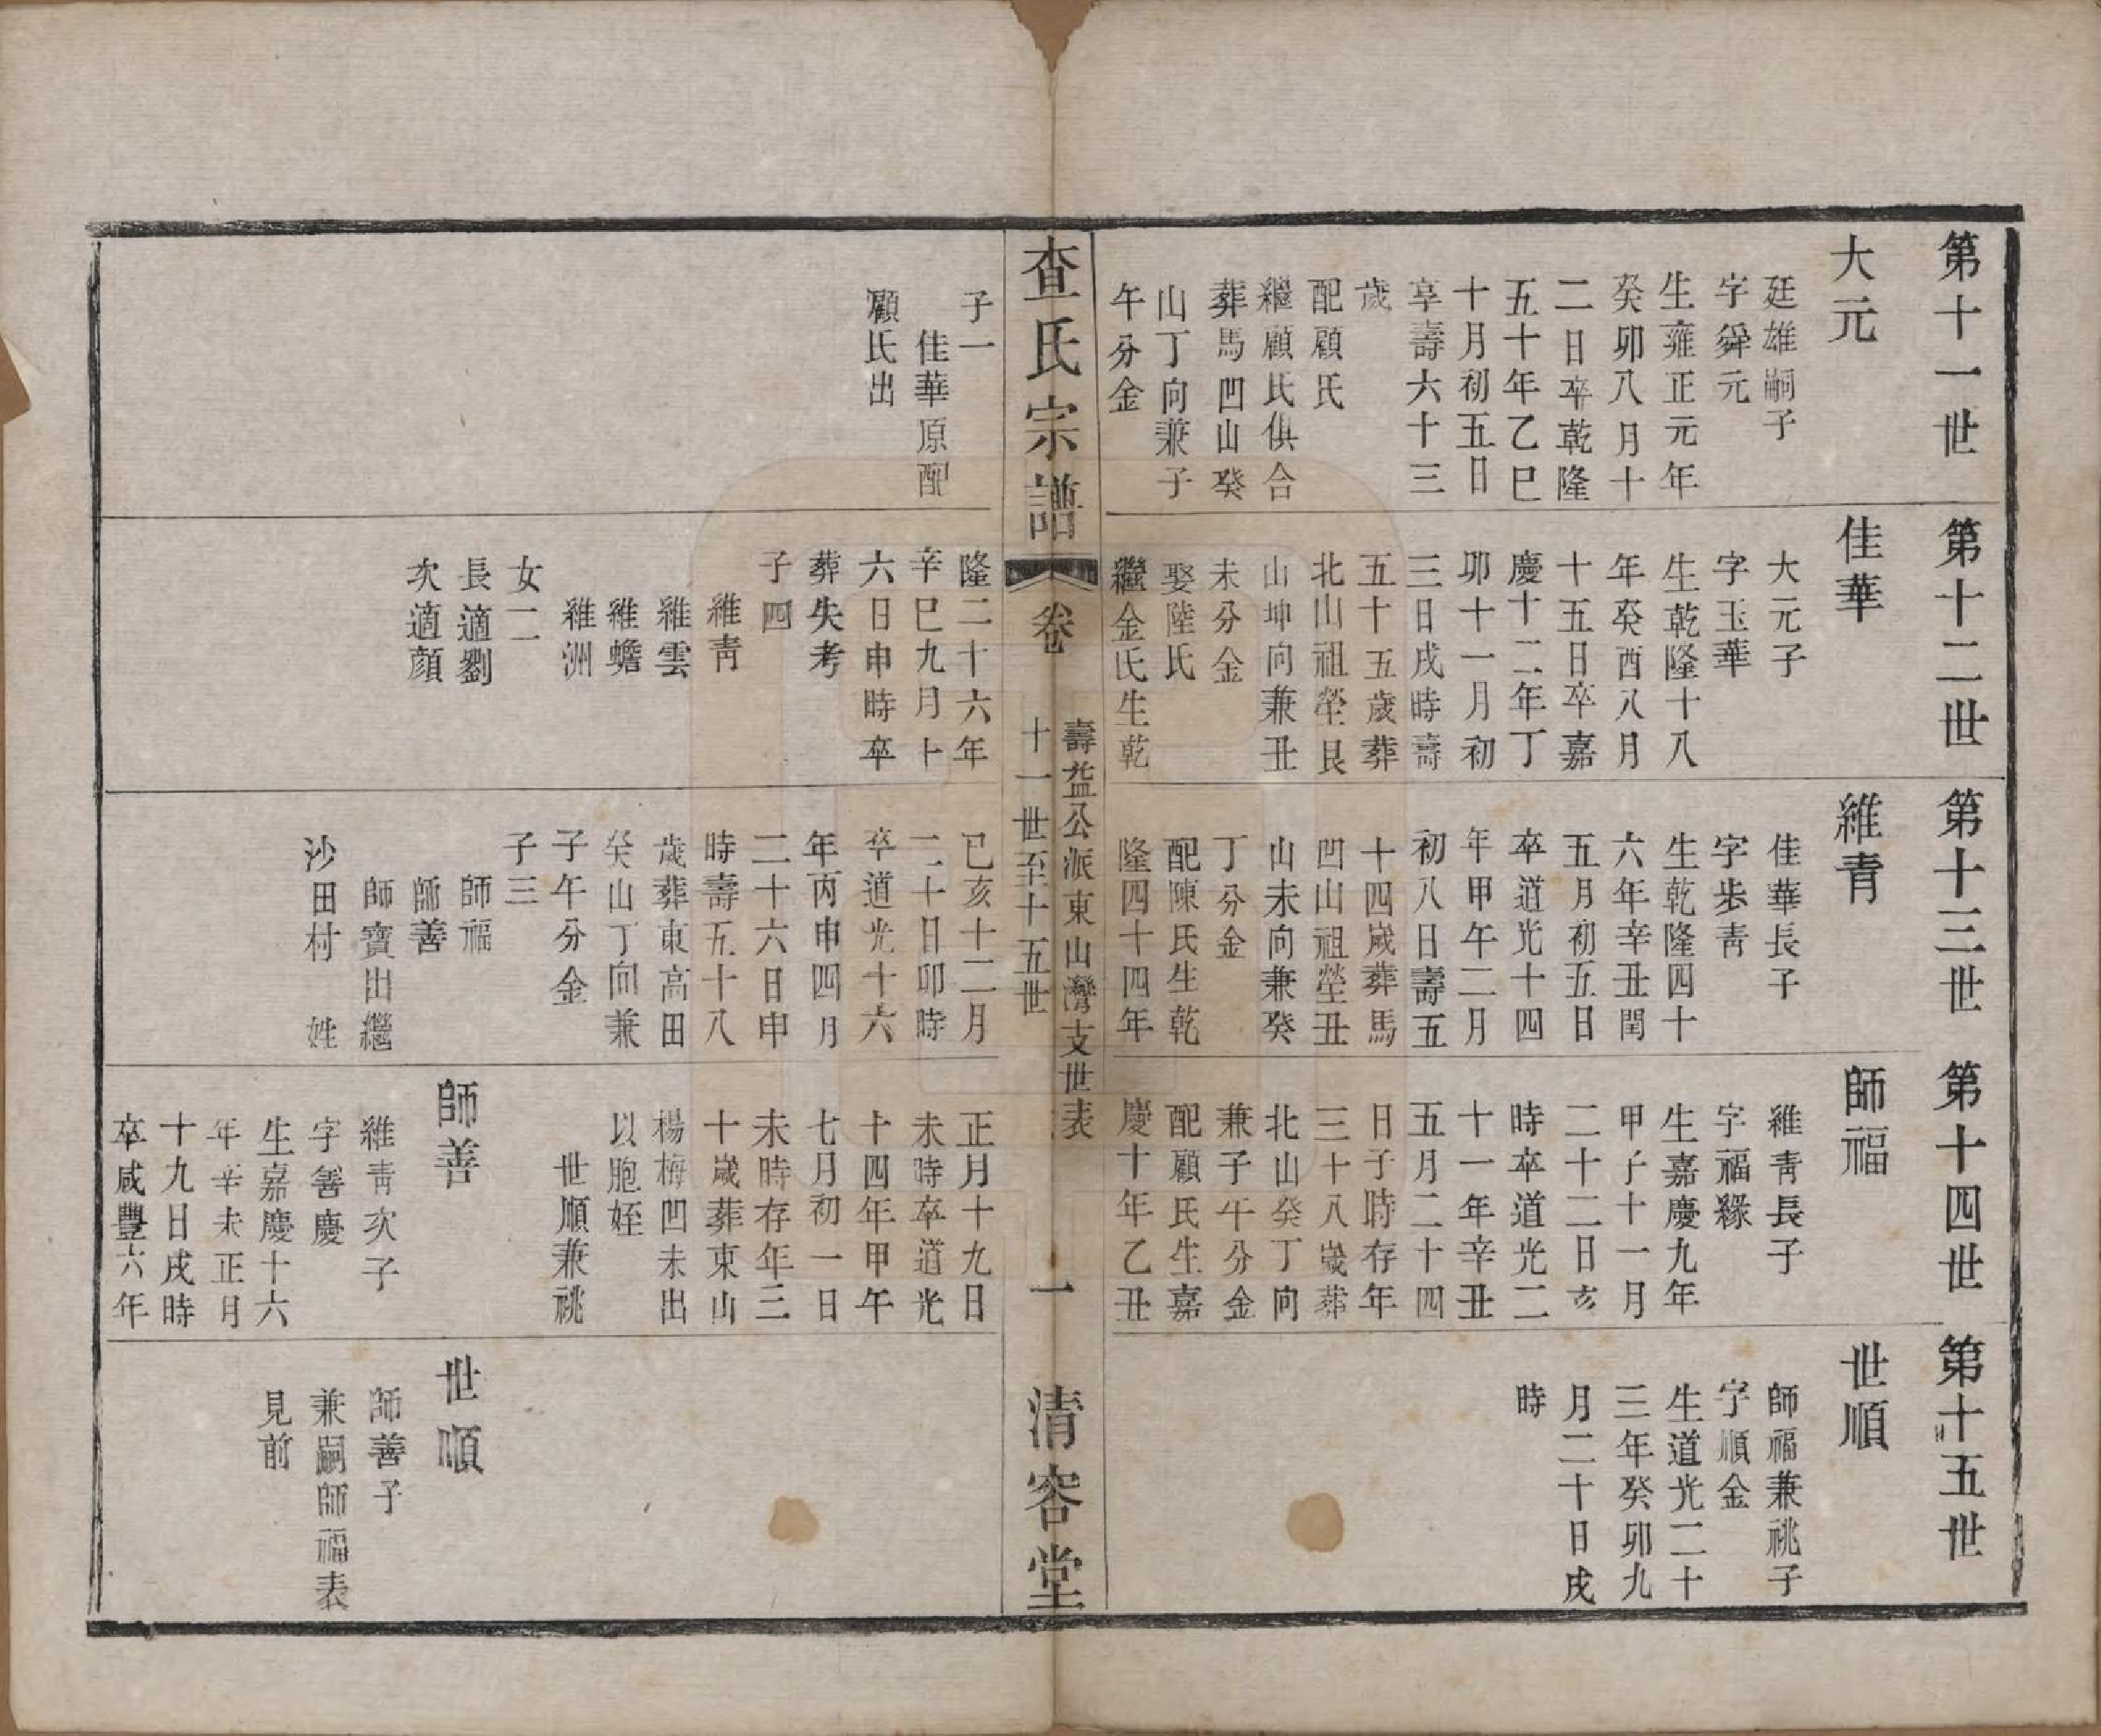 第十一世
大元
廷雄嗣子
字舜元
生雍正元年
癸卯八月十
二日卒乾隆
五十年乙巳
十月初五日
享壽六十三
歲
配顧氏
繼顧氏俱合
葬馬凹山癸
山丁向兼子
午分金
子一
佳華原配
顧氏出
第十二世
佳華
大元子
字玉華
生乾隆十八
年癸酉八月
十五日卒嘉
慶十二年丁
卯十一月初
三日戌時壽
五十五歲葬
北山祖塋艮
山坤向兼丑
未分金
娶陸氏
繼金氏生乾
隆二十六年
辛巳九月十
六日申時卒
葬失考
子四
維青
維雲
維蟾
維洲
女二
長適劉
次適顔
第十三世
維青
佳華長子
字步靑
生乾隆四十
六年辛丑閏
五月初五日
卒道光十四
年甲午二月
初八日壽五
十四歲葬馬
凹山祖塋丑
山未向兼癸
丁分金
配陳氏生乾
隆四十四年
已亥十二月
二十日卯時
卒道光十六
年丙申四月
二十六日申
時壽五十八
歲葬東高田
癸山丁向兼
子午分金
子三
師福
師善
師寶出繼
沙田村 姓
第十四世
師福
維青長子
字福緣
生嘉慶九年
甲子十一月
二十二日亥
時卒道光二
十一年辛丑
五月二十四
日子時存年
三十八歲葬
北山癸丁向
兼子午分金
配顧氏生嘉
慶十年乙丑
正月十九日
未時卒道光
十四年甲午
七月初一日
未時存年三
十歲葬東山
楊梅凹未出
以胞姪
世順兼祧
師善
維靑次子
字善慶
生嘉慶十六
年辛未正月
十九日戌時
卒咸豐六年
第十五世
世順
師福兼祧子
字順金
生道光二十
三年癸卯九
月二十日戌
時
世順
師善子
兼嗣師福表
見前
查氏宗譜
卷
壽益公派東山灣支世表
十一世至十五世
一
清容堂